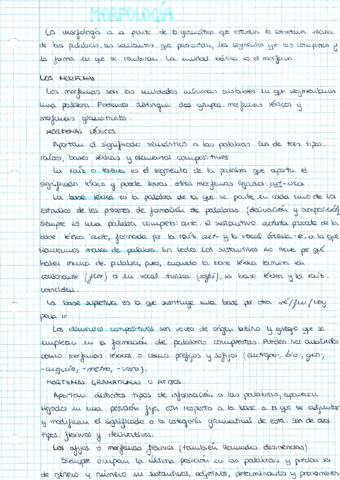 MORFOLOGÍA
La morfología es la parte de la gramática que estudia la estructura interna
de las palabras, las variantes que presentan, los segmentos que las componen y
la forma en que se combinan. La unidad mínima es el morfema.
LOS MORFEMAS
Los morfemas son las unidades mínimas aislables en que segmentamos
una palabra. Podemos distinguir dos grupos: morfemas léxicos y
morfemas gramaticales.
MORFEMAS LÉXICOS
Aportan el significado semántico a las palabras. Son de tres tipos:
raíces, bases léxicas y elementos compositivos
La raíz o lexema es el segmento de la palabra que aporta el
significado léxico y puede llevar otros morfemas ligados:
La base léxica es la palabra de la que se parte en cada uno de los
estadios de los procesos de formación de palabras (derivación y composición)
Siempre es una palabra completa: el sustantivo artista procede de la
base léxica arte, formada por la raíz art- y la vocal átona -e, a la que
llamamos marca de palabra. En todos los sustantivos no tiene por qué
haber marca de palabra, pues, cuando la base léxica termina en
consonante (flor) o en vocal tónica (sofá), la base léxica y la raíz
coinciden.
La base supletiva es la que sustituye una base por otra: ve/fu/voy
para ir
Los elementos compositivos son voces de origen latino y griego que se
emplean en la formación de palabras compuestas. Pueden ser
como morfemas léxicos o como prefijos y sufijos (autopsia, bio-, geo-,
-metro,
MORFEMAS GRAMATICALES O AFIJOS
Aportan distintos tipos de información a las palabras, aparecen
ligados en una posición fija, con respecto a la base a la que se adjuntan
y modifican el significado o la categoría gramatical de esta. Son de dos
tipos: flexivos y derivativos.
Los afijos o morfemas flexivos (también llamados desinencias)
Siempre ocupan la última posición en las palabras y pueden ser
de género y número en sustantivos, adjetivos, determinantes y pronombres